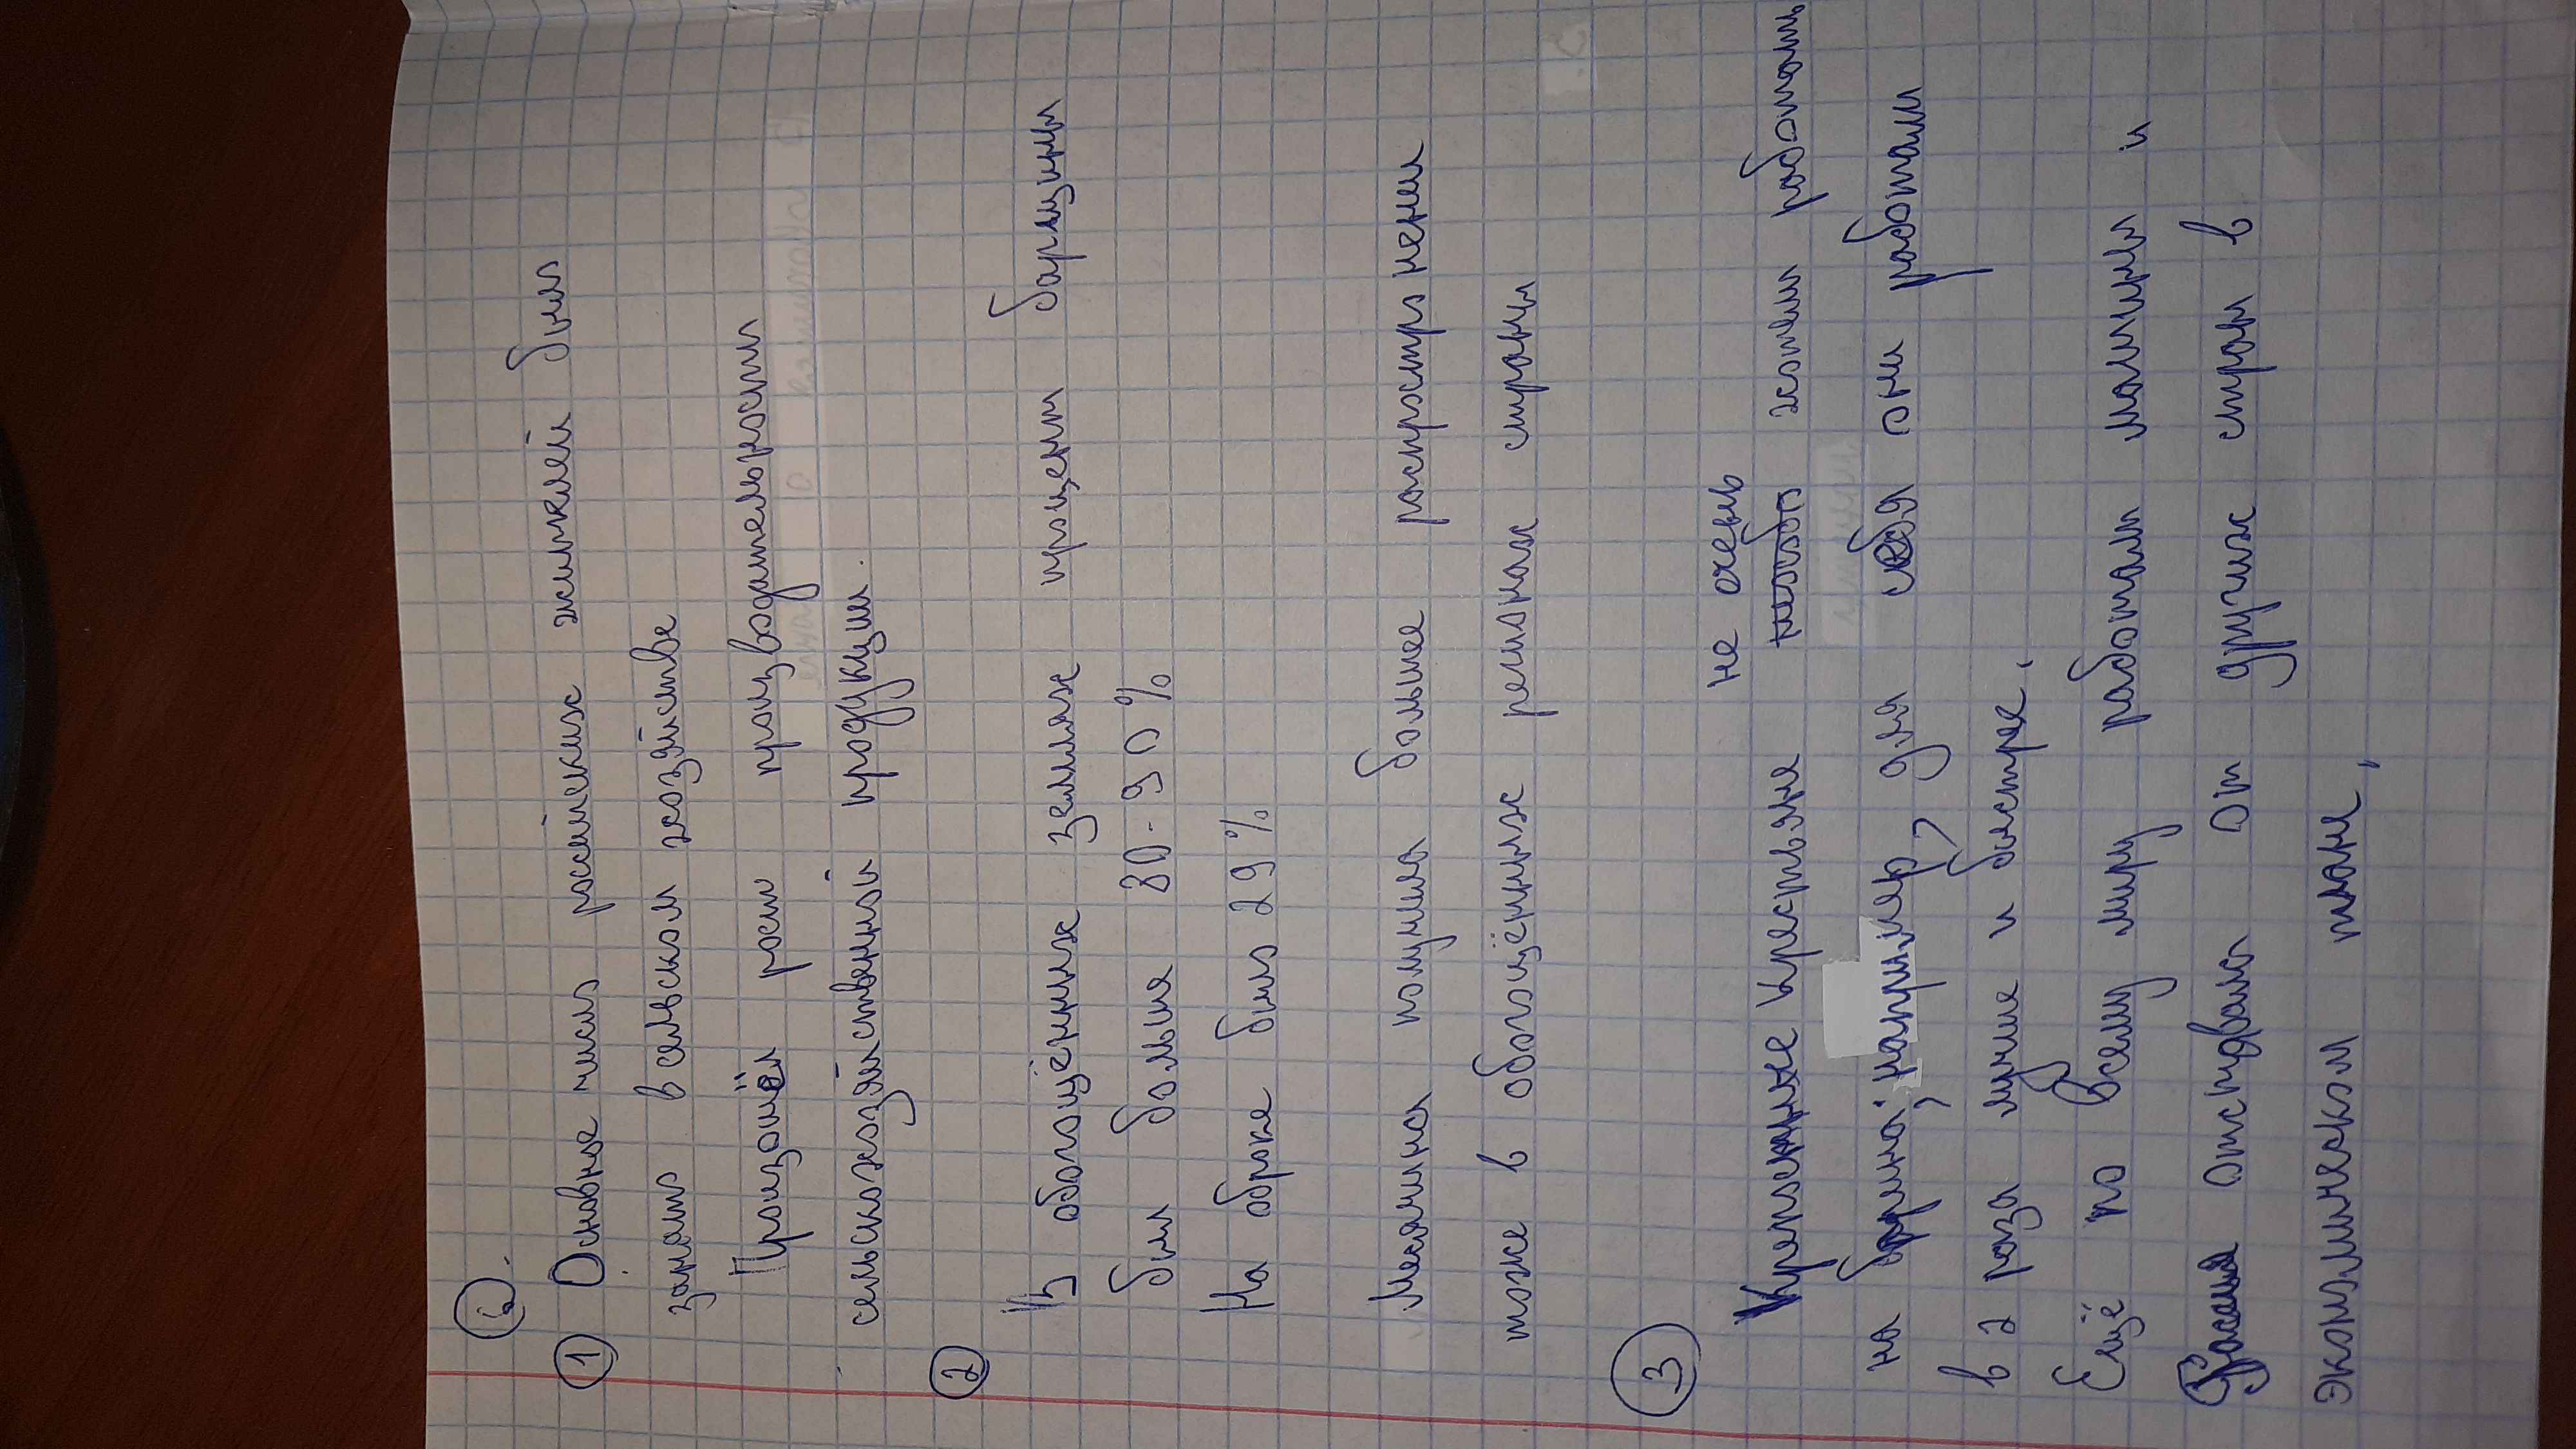 6.
① Основное число российских жителей было
занято в сельском хозяйстве
Произошёл рост производательности
сельскохозяйственной продукции.
②
В обогощённых землях процент барщины
был больше 80-90%
На оброке было 29%
Месячина получила большее распростр нении
тоже в обогощённых регионах страны
③ не очень
Крепосные Крестьяне хотели работать
на барина, например, для себя они работали
в 2 раза лучше и быстрее.
Ещё по всему миру работали машины и
Расия отставала от других стран в
экономическом плане,